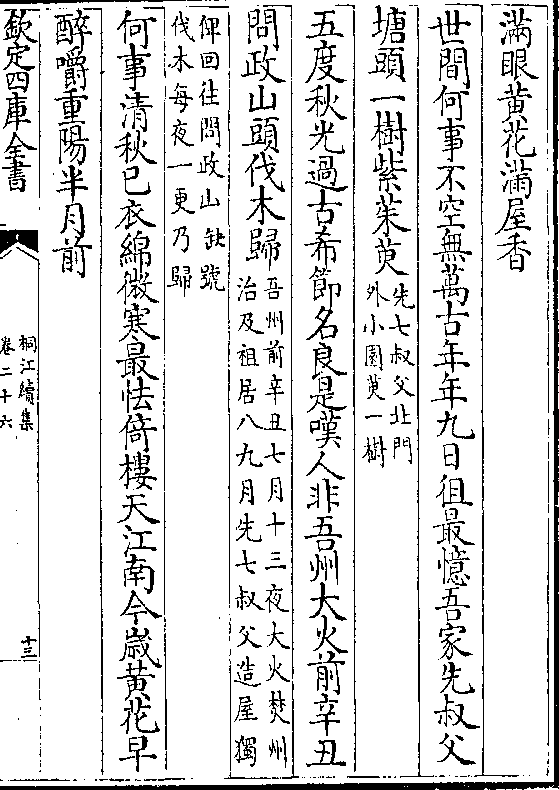 滿眼黄花滿屋香
世間何事不空無萬古年年九日徂最憶吾家先叔父
塘頭一樹紫茱萸先七叔父北門
外小園萸一樹
五度秋光過古希節名良是嘆人非吾州大火前辛丑
問政山頭伐木歸吾州前辛丑七月十三夜大火焚州
治及祖居八九月先七叔父造屋獨
俾回往問政山缺號
伐木每夜一更乃歸
何事清秋已衣綿微寒最怯倚樓天江南今嵗黄花早
醉嚼重陽半月前
欽定四庫全書
桐江續集
卷二十六
十三